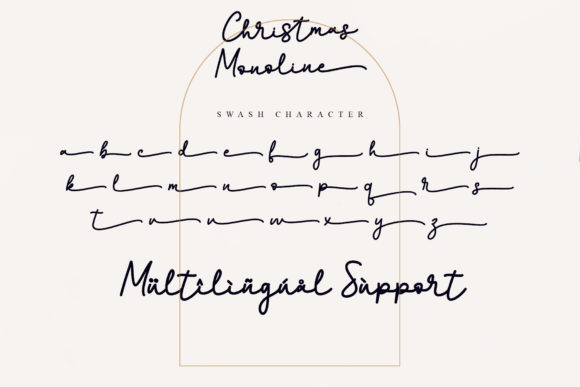 Christmas
Monoline
SWASH CHARACTER
a b c d e f g h i j
k l m n o p q r s
t u v w x y z
Mültîlïñgúål Sùppórt